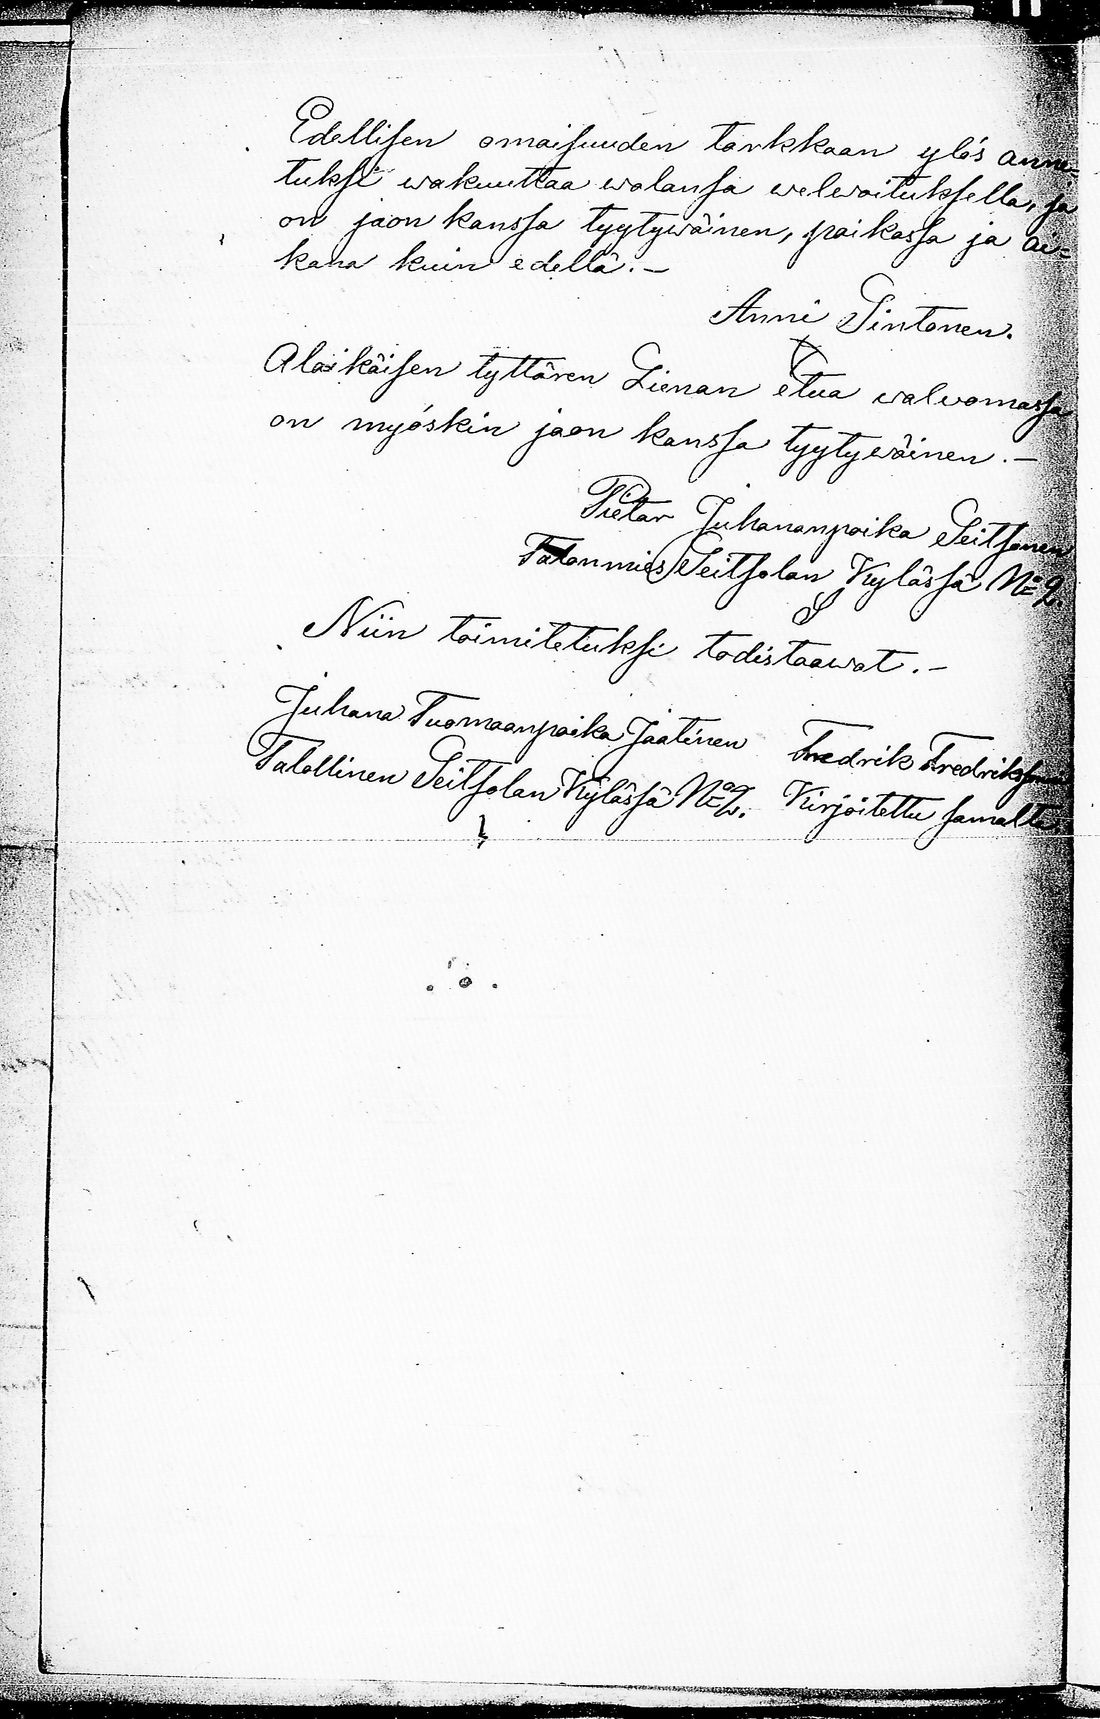 Edellisen omaisuuden tarkkaan ylös anne-
tuksi wakuuttaa walansa welwoituksella, ja
on jaon kanssa tyytywäinen, paikassa ja ai-
kana kuin edellä.—
Anni Pintonen.
Alaikäisen tyttären Lienan etua walvomassa
on myöskin jaon kanssa tyytywäinen.—
Pietar Juhananpoika Seitsonen
Talonmies Seitsolan Kylässä No 2.
Niin toimitetuksi todistaawat.—
Juhana Tuomaanpoika Jaatinen Fredrik Fredriksson
Talollinen Seitsolan Kylässä No 2. Kirjoitettu samalta